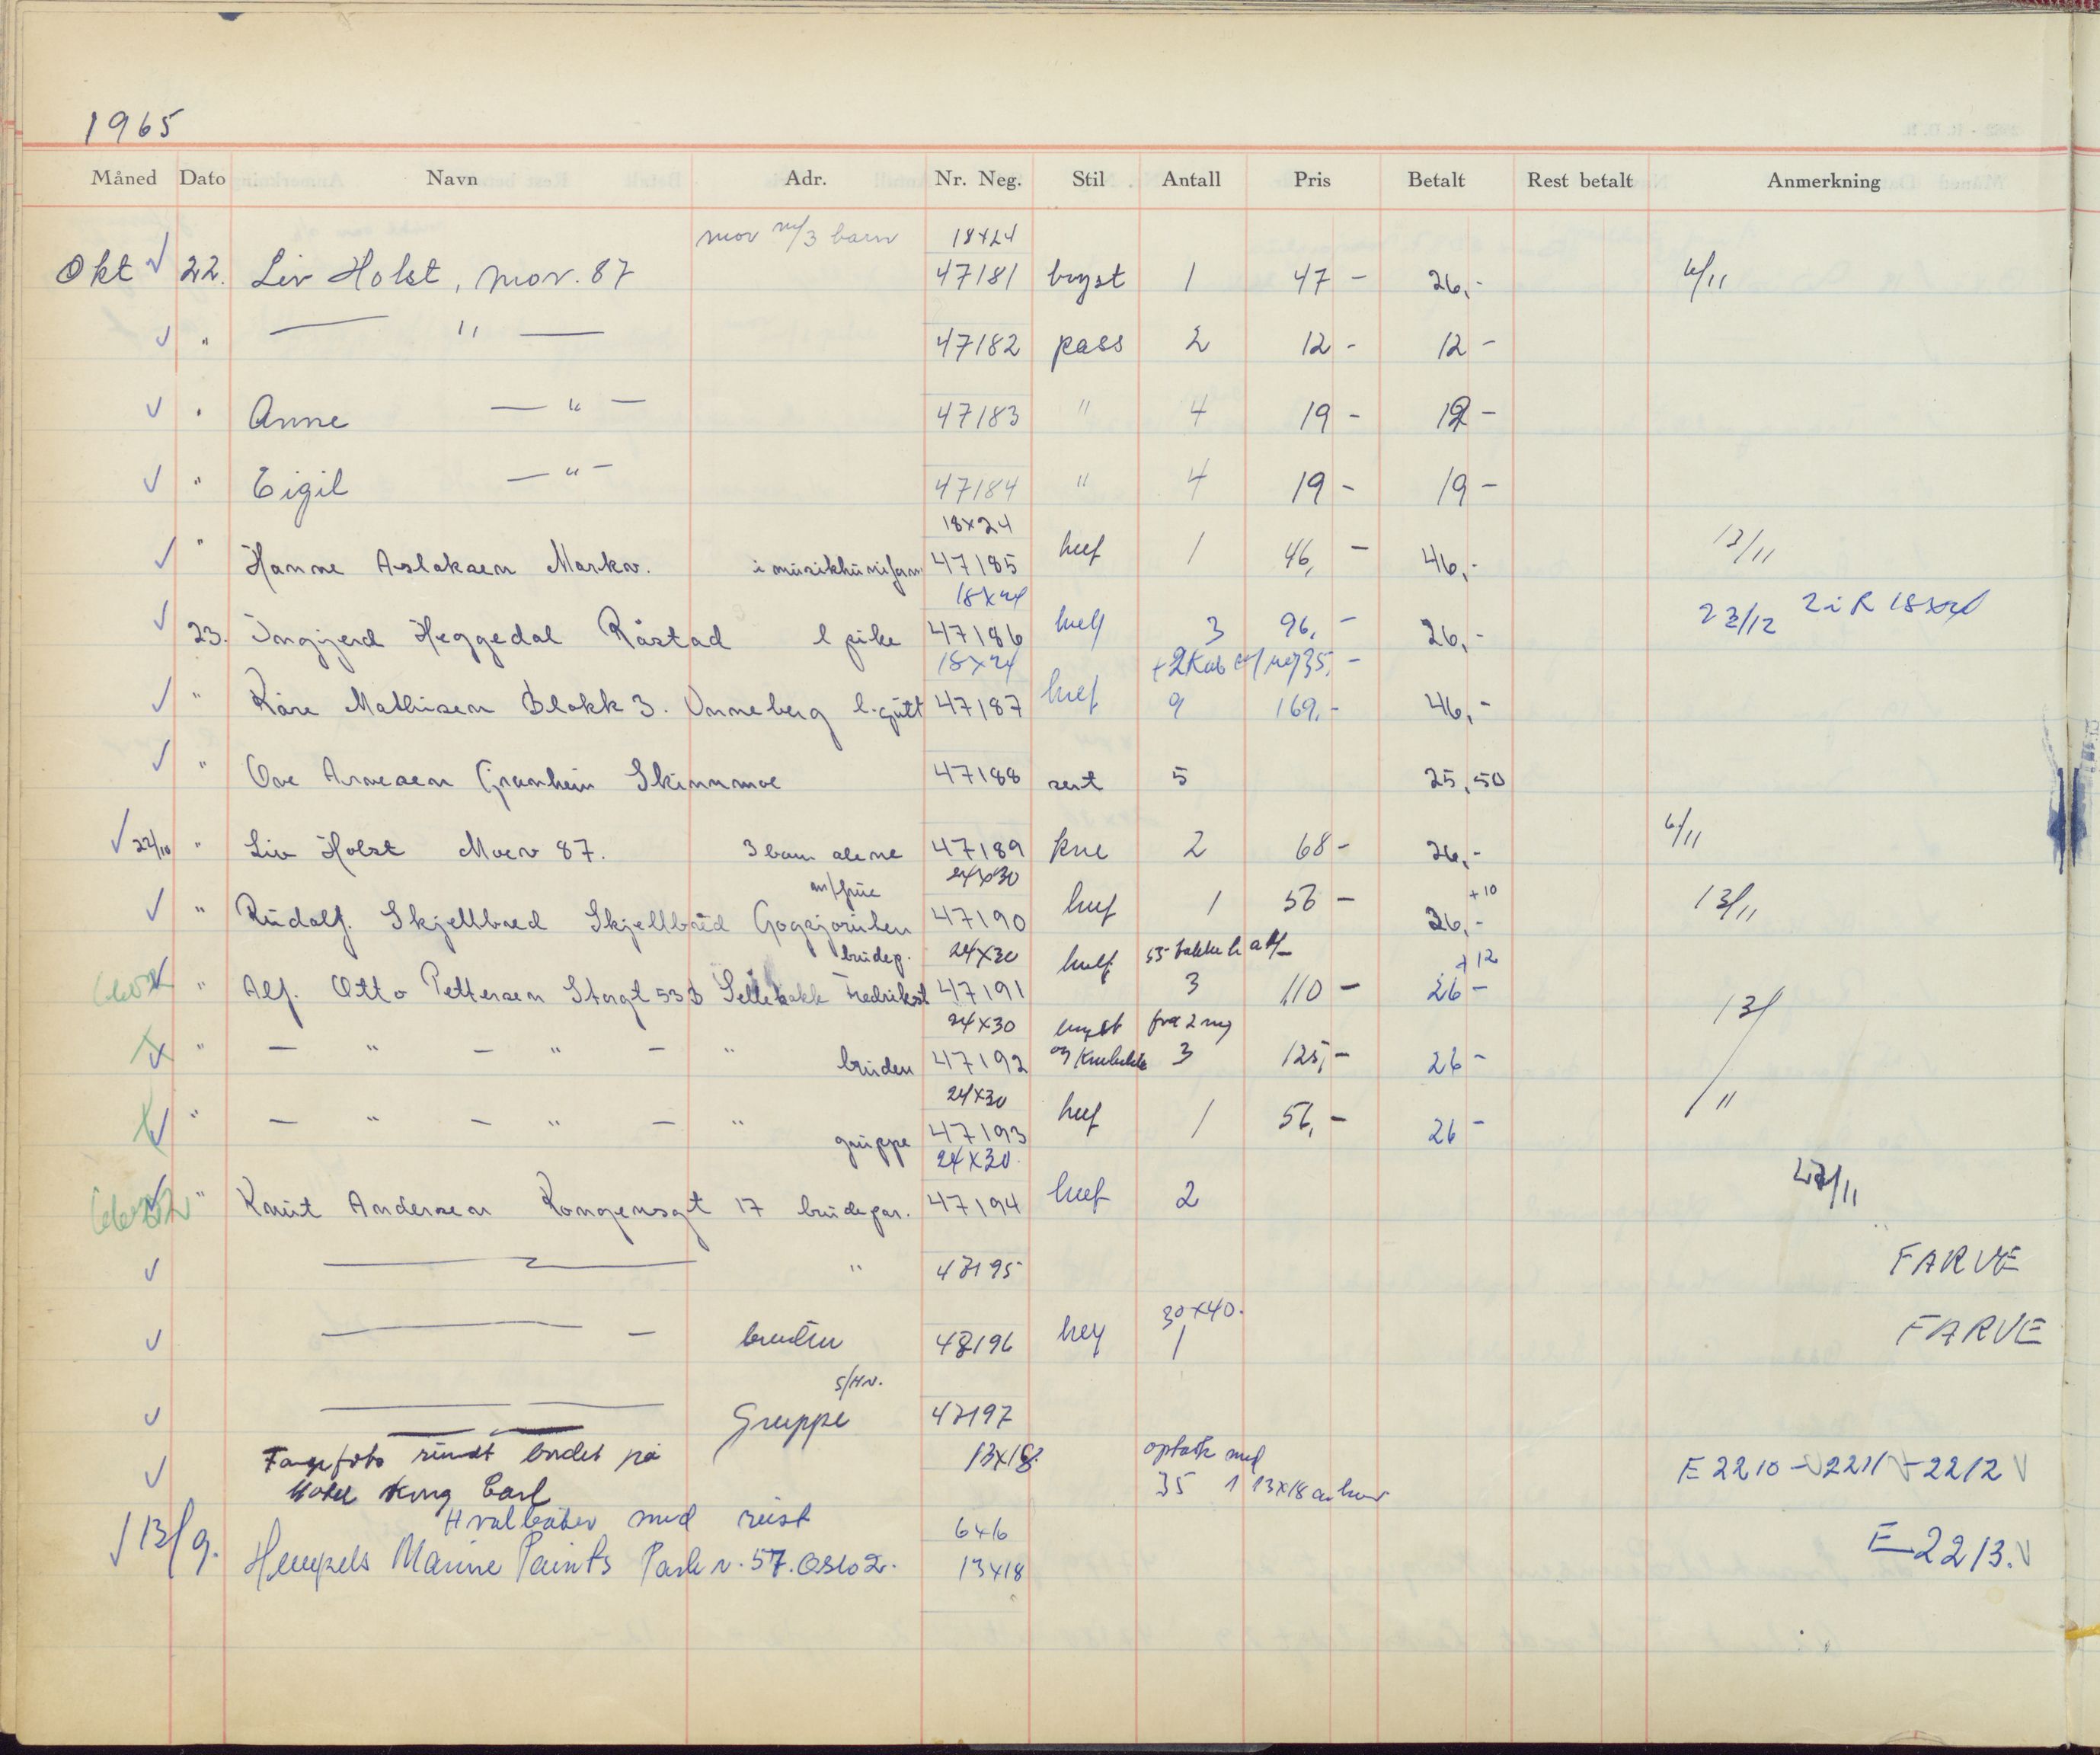 1965
Måned Dato Navn Adr. Nr. Neg. Stil Antall Pris Betalt Rest betalt Anmerkning
mor m/3 barn 18x24
Okt √ 22. Liv Holst, Mor. 87 47181 bryst 1 47 - 26,- 6/11
√ " — " — 47182 pass 2 12 - 12 -
√ " Anne — " — 47183 " 4 19 - 12 -
√ " Eigil — " — 47184 " 4 19 - 19 -
18x24
√ " Hanne Aslaksen Markv. i musikkuniform 47185 1 46,- 46,- 13/11
18x24
√ 23. Ingjerd Heggedal Råstad l pike 47186 3 96,- 26,- 23/12 2 i R 18x24
18x24
√ " Kåre Mathisen Blokk 3. Unneberg l.gutt 47187 9 169,- 46,-
√ " Ove Arnesen Granheim Skinnmoe 47188 5 25,50
√ 22/10 " Liv Holst Morv 87. 3 barn alene 47189 kne 2 68 - 26,- 6/11
m/frue 24x30 +10
√ " Rudolf. Skjellbred 47190 1 56 - 26,- 13/11
brudep. 24x30 +12
" Alf. Otto Pettersen Storgt 53 b Sellebakk Fredrikst 47191 3 110 - 26 - 13/
24x30 bryst
" — " — " — " bruden 47192 og 3 125,- 26 -
24x30
√ " — " — " — " gruppe 47193 1 56,- 26 - 11
24x30
" Knut Andersen Kongensgt 17 brudepar. 47194 2
√ — " 47195 FARVE
30x40.
√ — bruden 1 FARVE
S/Hv.
√ — Gruppe 47197
√ rundt bordet på 13x18
Hotel King Carl 35 1 13x18 E 2210 - √ 2211 √ - 2212 √
Hvalbåter med rust 6x6
√ 13/9. Hempels Marine Paints Parkv. 57. Oslo 2. 13x18 E 2213. √